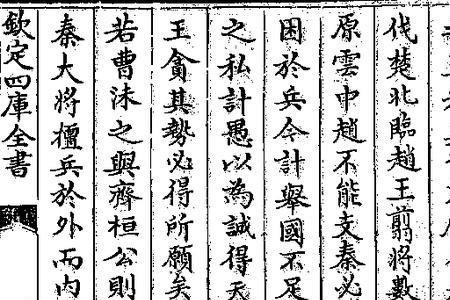 伐楚北臨趙王翦將數
原雲中趙不能支秦必
困於兵今計舉國不足
之私計愚以為誠得天
王貪其勢必得所願矣
若曹沬之與齊桓公則
秦大將擅兵於外而内
欽定四庫全書